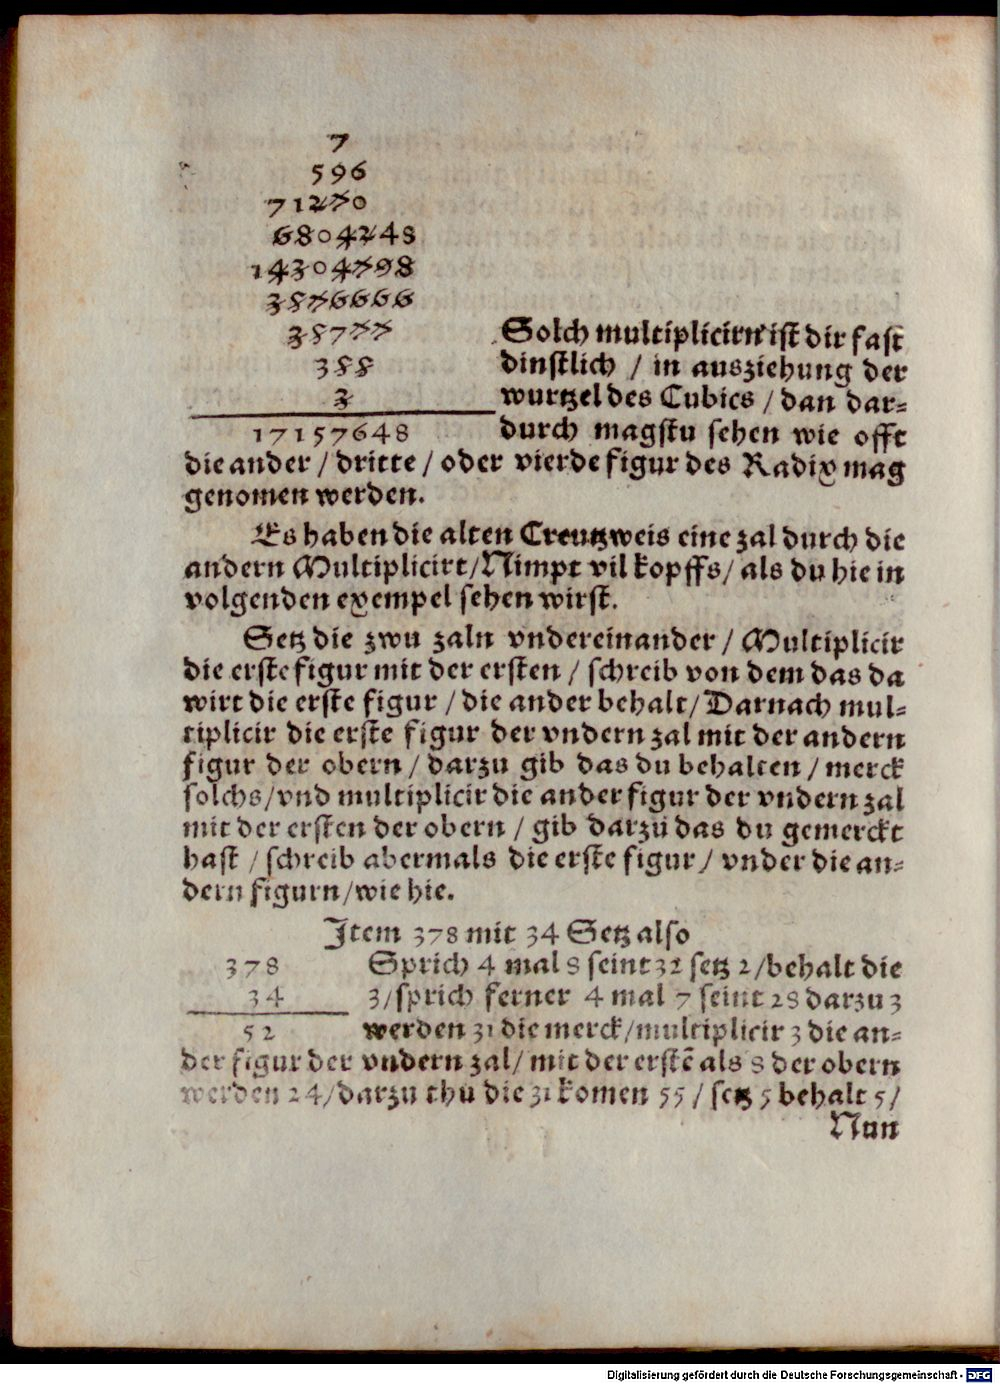 7
596
71270
6804248
14304798
3876666
38777
388
3
17157648
Solch multiplicirn ist dir fast
dinstlich / in ausziehung der
wurtzel des Cubics / dan dar-
durch magstu sehen wie offt
die ander / dritte / oder vierde figur des Radix mag
genomen werden.
Es haben die alten Creutzweis eine zal durch die
andern Multiplicirt / Nimpt vil kopffs / als du hie in
volgenden exempel sehen wirst.
Setz die zwu zaln vndereinander / Multiplicir
die erste figur mit der ersten / schreib von dem das da
wirt die erste figur / die ander behalt / Darnach mul-
tiplicir die erste figur der vndern zal mit der andern
figur der obern / darzu gib das du behalten / merck
solchs / vnd multiplicir die ander figur der vndern zal
mit der ersten der obern / gib darzu das du gemerckt
hast / schreib abermals die erste figur / vnder die an-
dern figurn / wie hie.
Item 378 mit 34 Setz also
378
34
52
Sprich 4 mal 8 seint 32 setz 2 / behalt die
3 / sprich ferner 4 mal 7 seint 28 darzu 3
werden 31 die merck / multiplicir 3 die an-
der figur der vndern zal / mit der erstē als 8 der obern
werden 24 / darzu thu die 31 komen 55 / setz 5 behalt 5 /
Nun
Digitalisierung gefördert durch die Deutsche Forschungsgemeinschaft - DFG